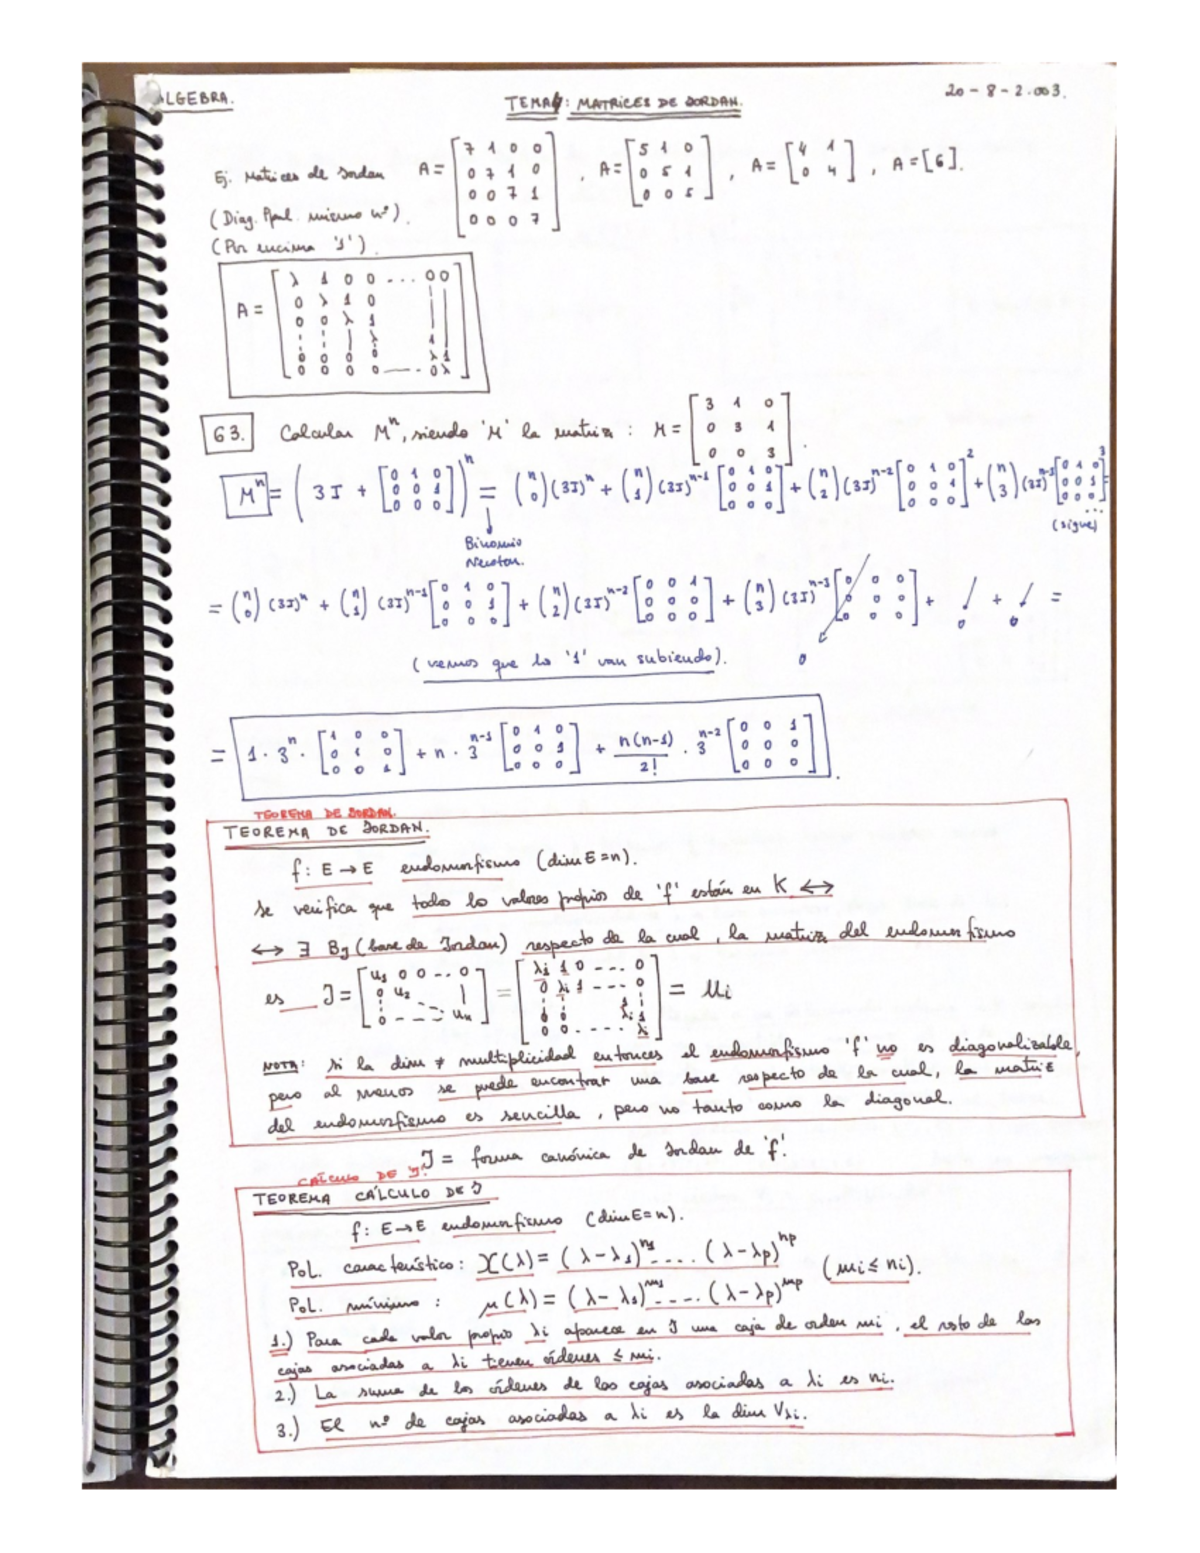 ALGEBRA.
TEMA 4: MATRICES DE JORDAN.
20-8-2.003.
Ej. Matrices de Jordan A = [7 1 0 0; 0 7 1 0; 0 0 7 1; 0 0 0 7], A = [5 1 0; 0 5 1; 0 0 5], A = [4 1; 0 4], A = [6].
(Diag. Ppal. mismo nº).
(Por encima '1').
A = [λ 1 0 0 ... 0 0; 0 λ 1 0; 0 0 λ 1; λ 1; 0 0 0 0 λ 1; 0 0 0 0 --- 0 λ]
63. Calcular Mⁿ, siendo 'M' la matriz: M = [3 1 0; 0 3 1; 0 0 3].
Mⁿ = (3I + [0 1 0; 0 0 1; 0 0 0])ⁿ = (n 0)(3I)ⁿ + (n 1)(3I)ⁿ⁻¹ [0 1 0; 0 0 1; 0 0 0] + (n 2)(3I)ⁿ⁻² [0 1 0; 0 0 1; 0 0 0]² + (n 3)(3I)ⁿ⁻³ [0 1 0; 0 0 1; 0 0 0]³ =
...
(sigue)
Binomio
Newton.
= (n 0)(3I)ⁿ + (n 1)(3I)ⁿ⁻¹ [0 1 0; 0 0 1; 0 0 0] + (n 2)(3I)ⁿ⁻² [0 0 1; 0 0 0; 0 0 0] + (n 3)(3I)ⁿ⁻³ [0 0 0; 0 0 0; 0 0 0] + + =
0 0 0
(vemos que lo '1' van subiendo).
= 1·3ⁿ· [1 0 0; 0 1 0; 0 0 1] + n·3ⁿ⁻¹ [0 1 0; 0 0 1; 0 0 0] + n(n-1)/2! · 3ⁿ⁻² [0 0 1; 0 0 0; 0 0 0].
TEOREMA DE JORDAN.
TEOREMA DE JORDAN.
f: E → E endomorfismo (dim E = n).
se verifica que todos lo valores propios de 'f' están en K ↔
↔ ∃ BJ (base de Jordan) respecto de la cual, la matriz del endomorfismo
es J = [u₁ 0 0 .. 0; 0 u₂; 0 - - - uₙ] = [λi 1 0 --- 0; 0 λi 1 --- 0; 0 0 λi 1; 0 0 ..... λi] = Mi
NOTA: si la dim ≠ multiplicidad entonces el endomorfismo 'f' no es diagonalizable,
pero al menos se puede encontrar una base respecto de la cual, la matriz
del endomorfismo es sencilla, pero no tanto como la diagonal.
J = forma canónica de Jordan de 'f'.
CÁLCULO DE 'J'.
TEOREMA CÁLCULO DE J
f: E → E endomorfismo (dim E = n).
Pol. característico: X(λ) = (λ - λ₁)ⁿ¹ .... (λ - λp)ⁿᵖ (mi ≤ ni).
Pol. mínimo: μ(λ) = (λ - λ₁)ᵐ¹ .... (λ - λp)ᵐᵖ
1.) Para cada valor propio λi aparece en J una caja de orden mi, el resto de las
cajas asociadas a λi tienen órdenes ≤ mi.
2.) La suma de los órdenes de las cajas asociadas a λi es ni.
3.) El nº de cajas asociadas a λi es la dim Vλi.